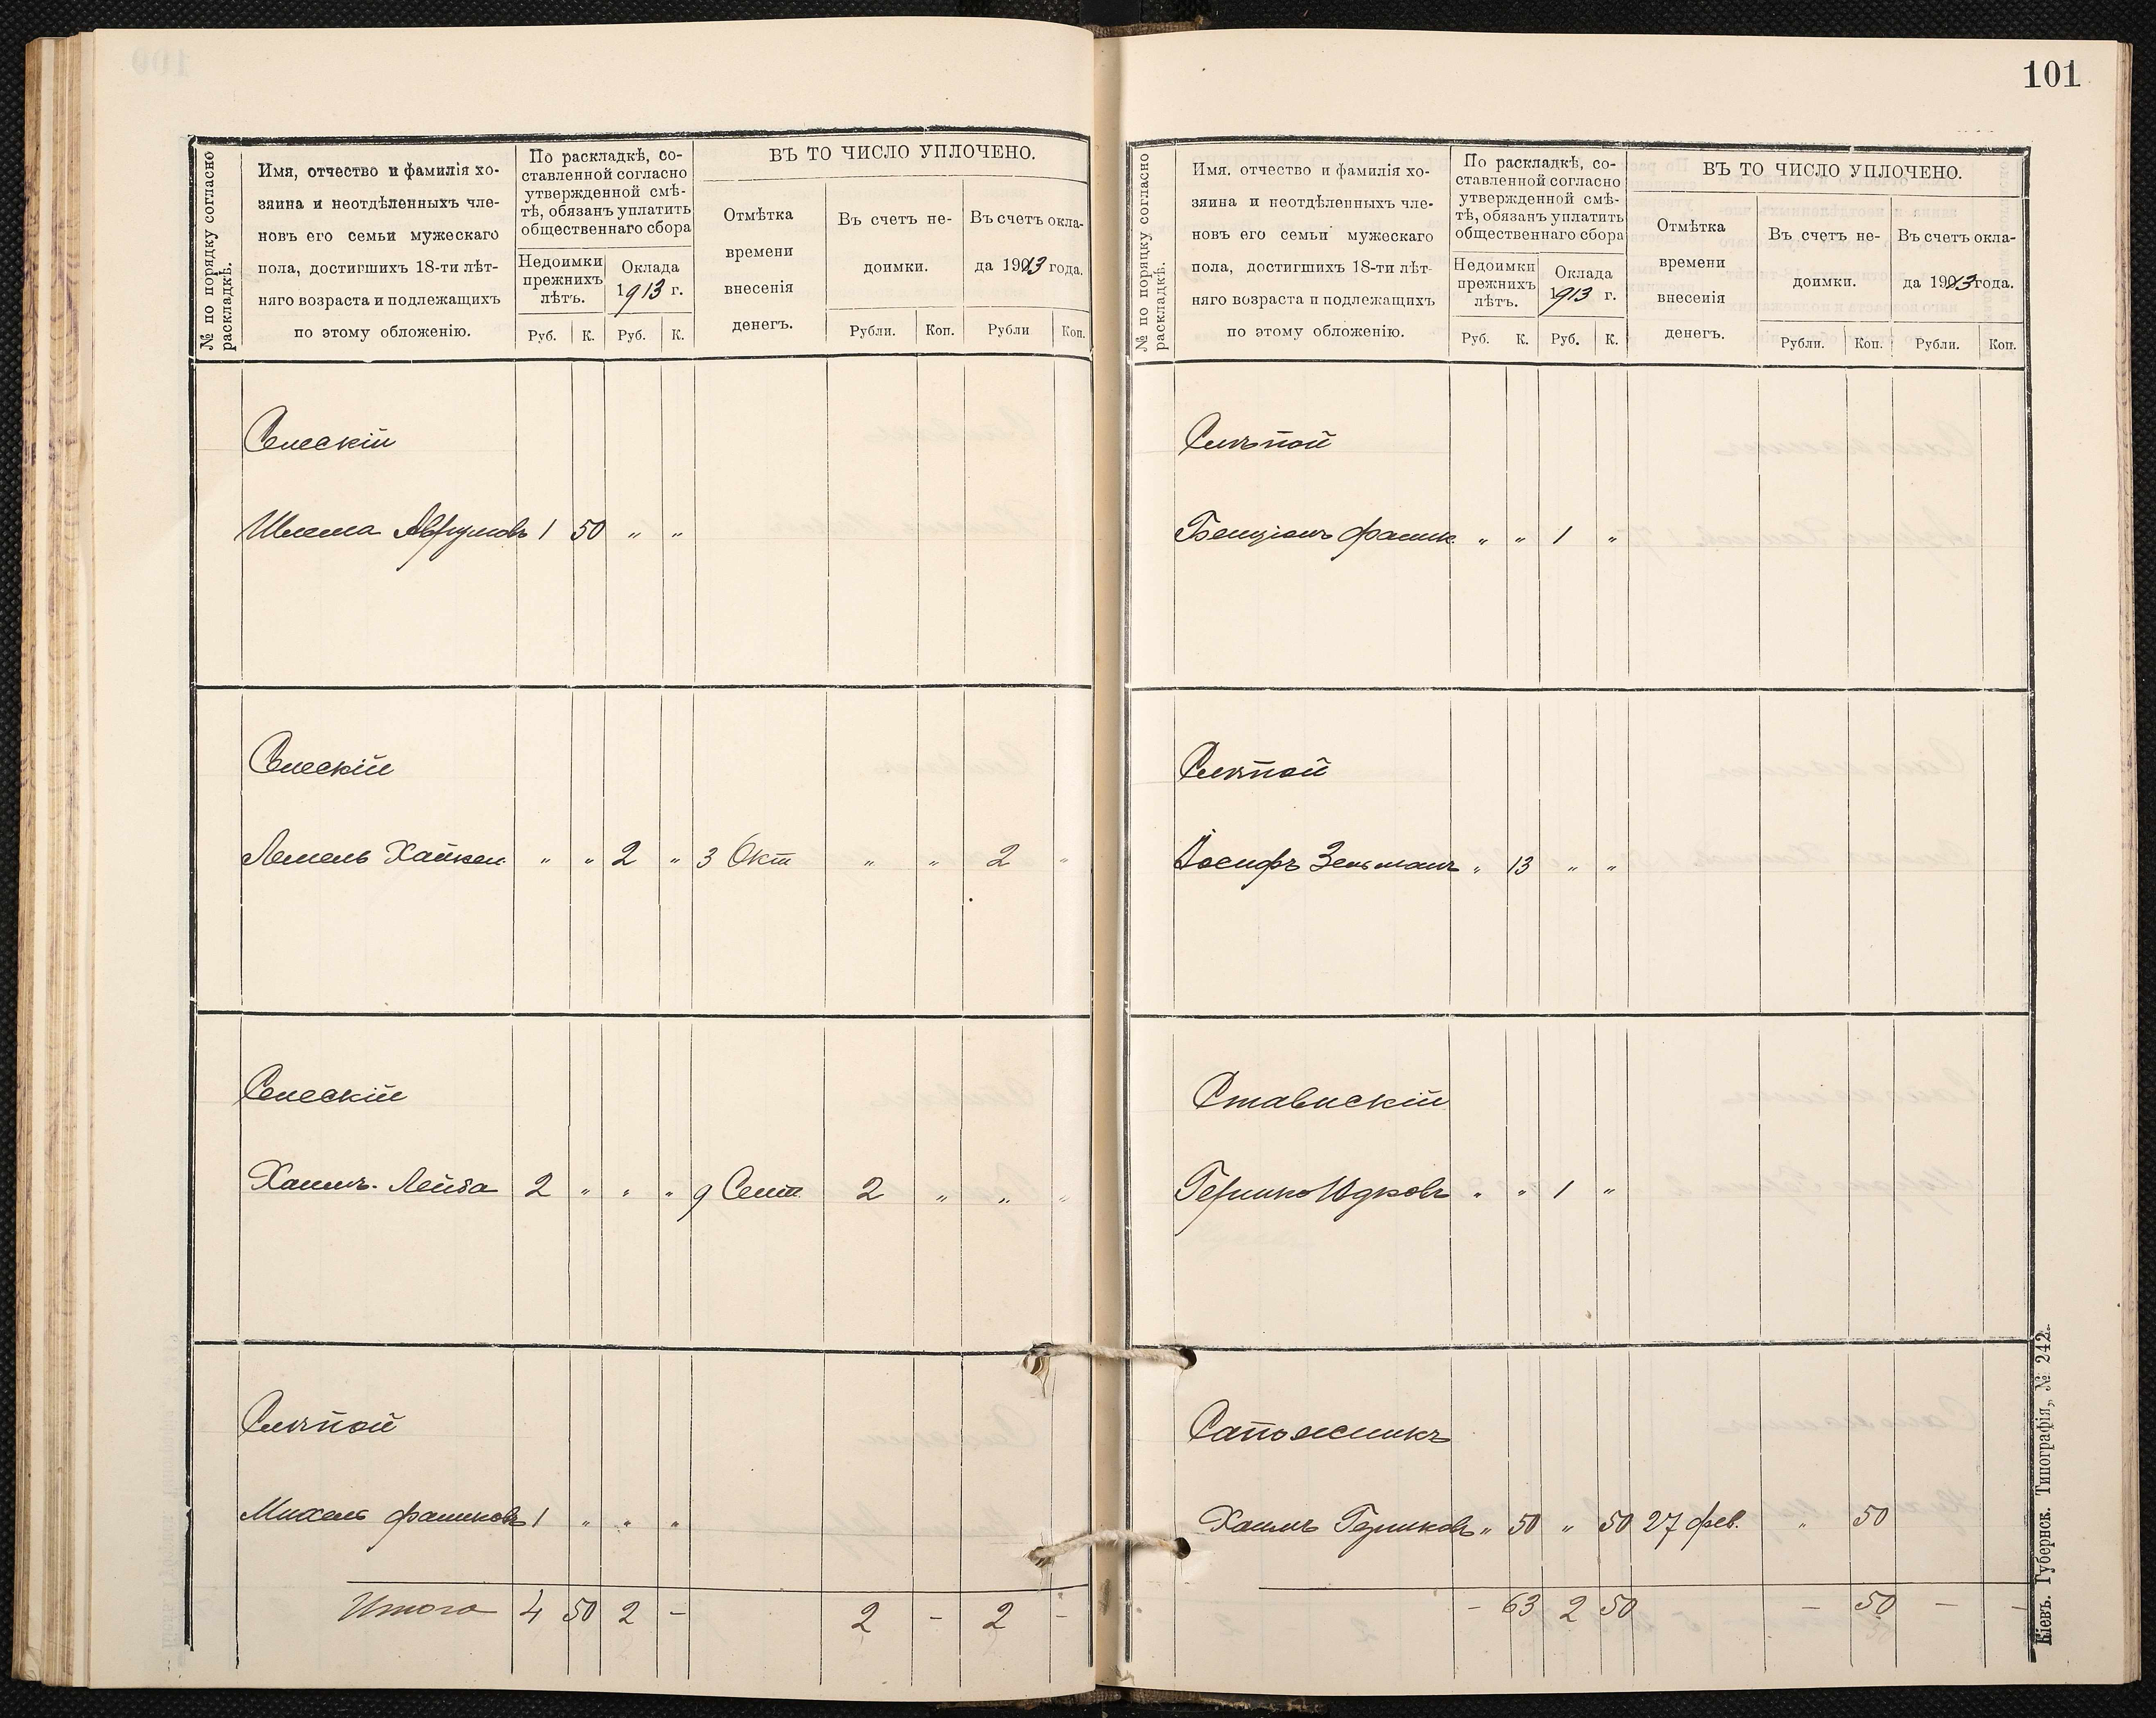 № по порядку согласно
раскладкѣ.
Имя, отчество и фамилія хо-
зяина и неотдѣленныхъ чле-
новъ его семьи мужескаго
пола, достигшихъ 18-ти лѣт-
няго возраста и подлежащихъ
по этому обложенію.
По раскладкѣ, со-
ставленной согласно
утвержденной смѣ-
тѣ, обязанъ уплатить
общественнаго сбора
Недоимки
прежнихъ
лѣтъ.
Оклада
1913 г.
Руб. К. Руб. К.
ВЪ ТО ЧИСЛО УПЛОЧЕНО.
Отмѣтка
времени
внесенія
денегъ.
Въ счетъ не-
доимки.
Въ счетъ окла-
да 1913 года.
Рубли. Коп. Рубли Коп.
Селескій
Шлема Аврумовъ 1 50 " "
Селескій
Лемель Хаимов " " 2 " 3 Окт " " 2 "
Селескій
Хаимъ-Лейба 2 " " " 9 Сент 2 " " "
Слѣпой
Михель Фаликовъ 1 " " "
Итого 4 50 2 - 2 - 2 -
101
№ по порядку согласно
раскладкѣ.
Имя, отчество и фамилія хо-
зяина и неотдѣленныхъ чле-
новъ его семьи мужескаго
пола, достигшихъ 18-ти лѣт-
няго возраста и подлежащихъ
по этому обложенію.
По раскладкѣ, со-
ставленной согласно
утвержденной смѣ-
тѣ, обязанъ уплатить
общественнаго сбора
Недоимки
прежнихъ
лѣтъ.
Оклада
1913 г.
Руб. К. Руб. К.
ВЪ ТО ЧИСЛО УПЛОЧЕНО.
Отмѣтка
времени
внесенія
денегъ.
Въ счетъ не-
доимки.
Въ счетъ окла-
да 1913 года.
Рубли. Коп. Рубли. Коп.
Слѣпой
Бенціонъ Фалик " " 1 "
Слѣпой
Іосифъ Зельманъ " 13 " "
Ставискій
Гершко Идковъ " " 1 "
Сапожникъ
Хаимъ Гершковъ " 50 " 50 27 фев. " 50
- 63 2 50 - 50 - -
Кіевъ. Губернск. Типографія, № 242.